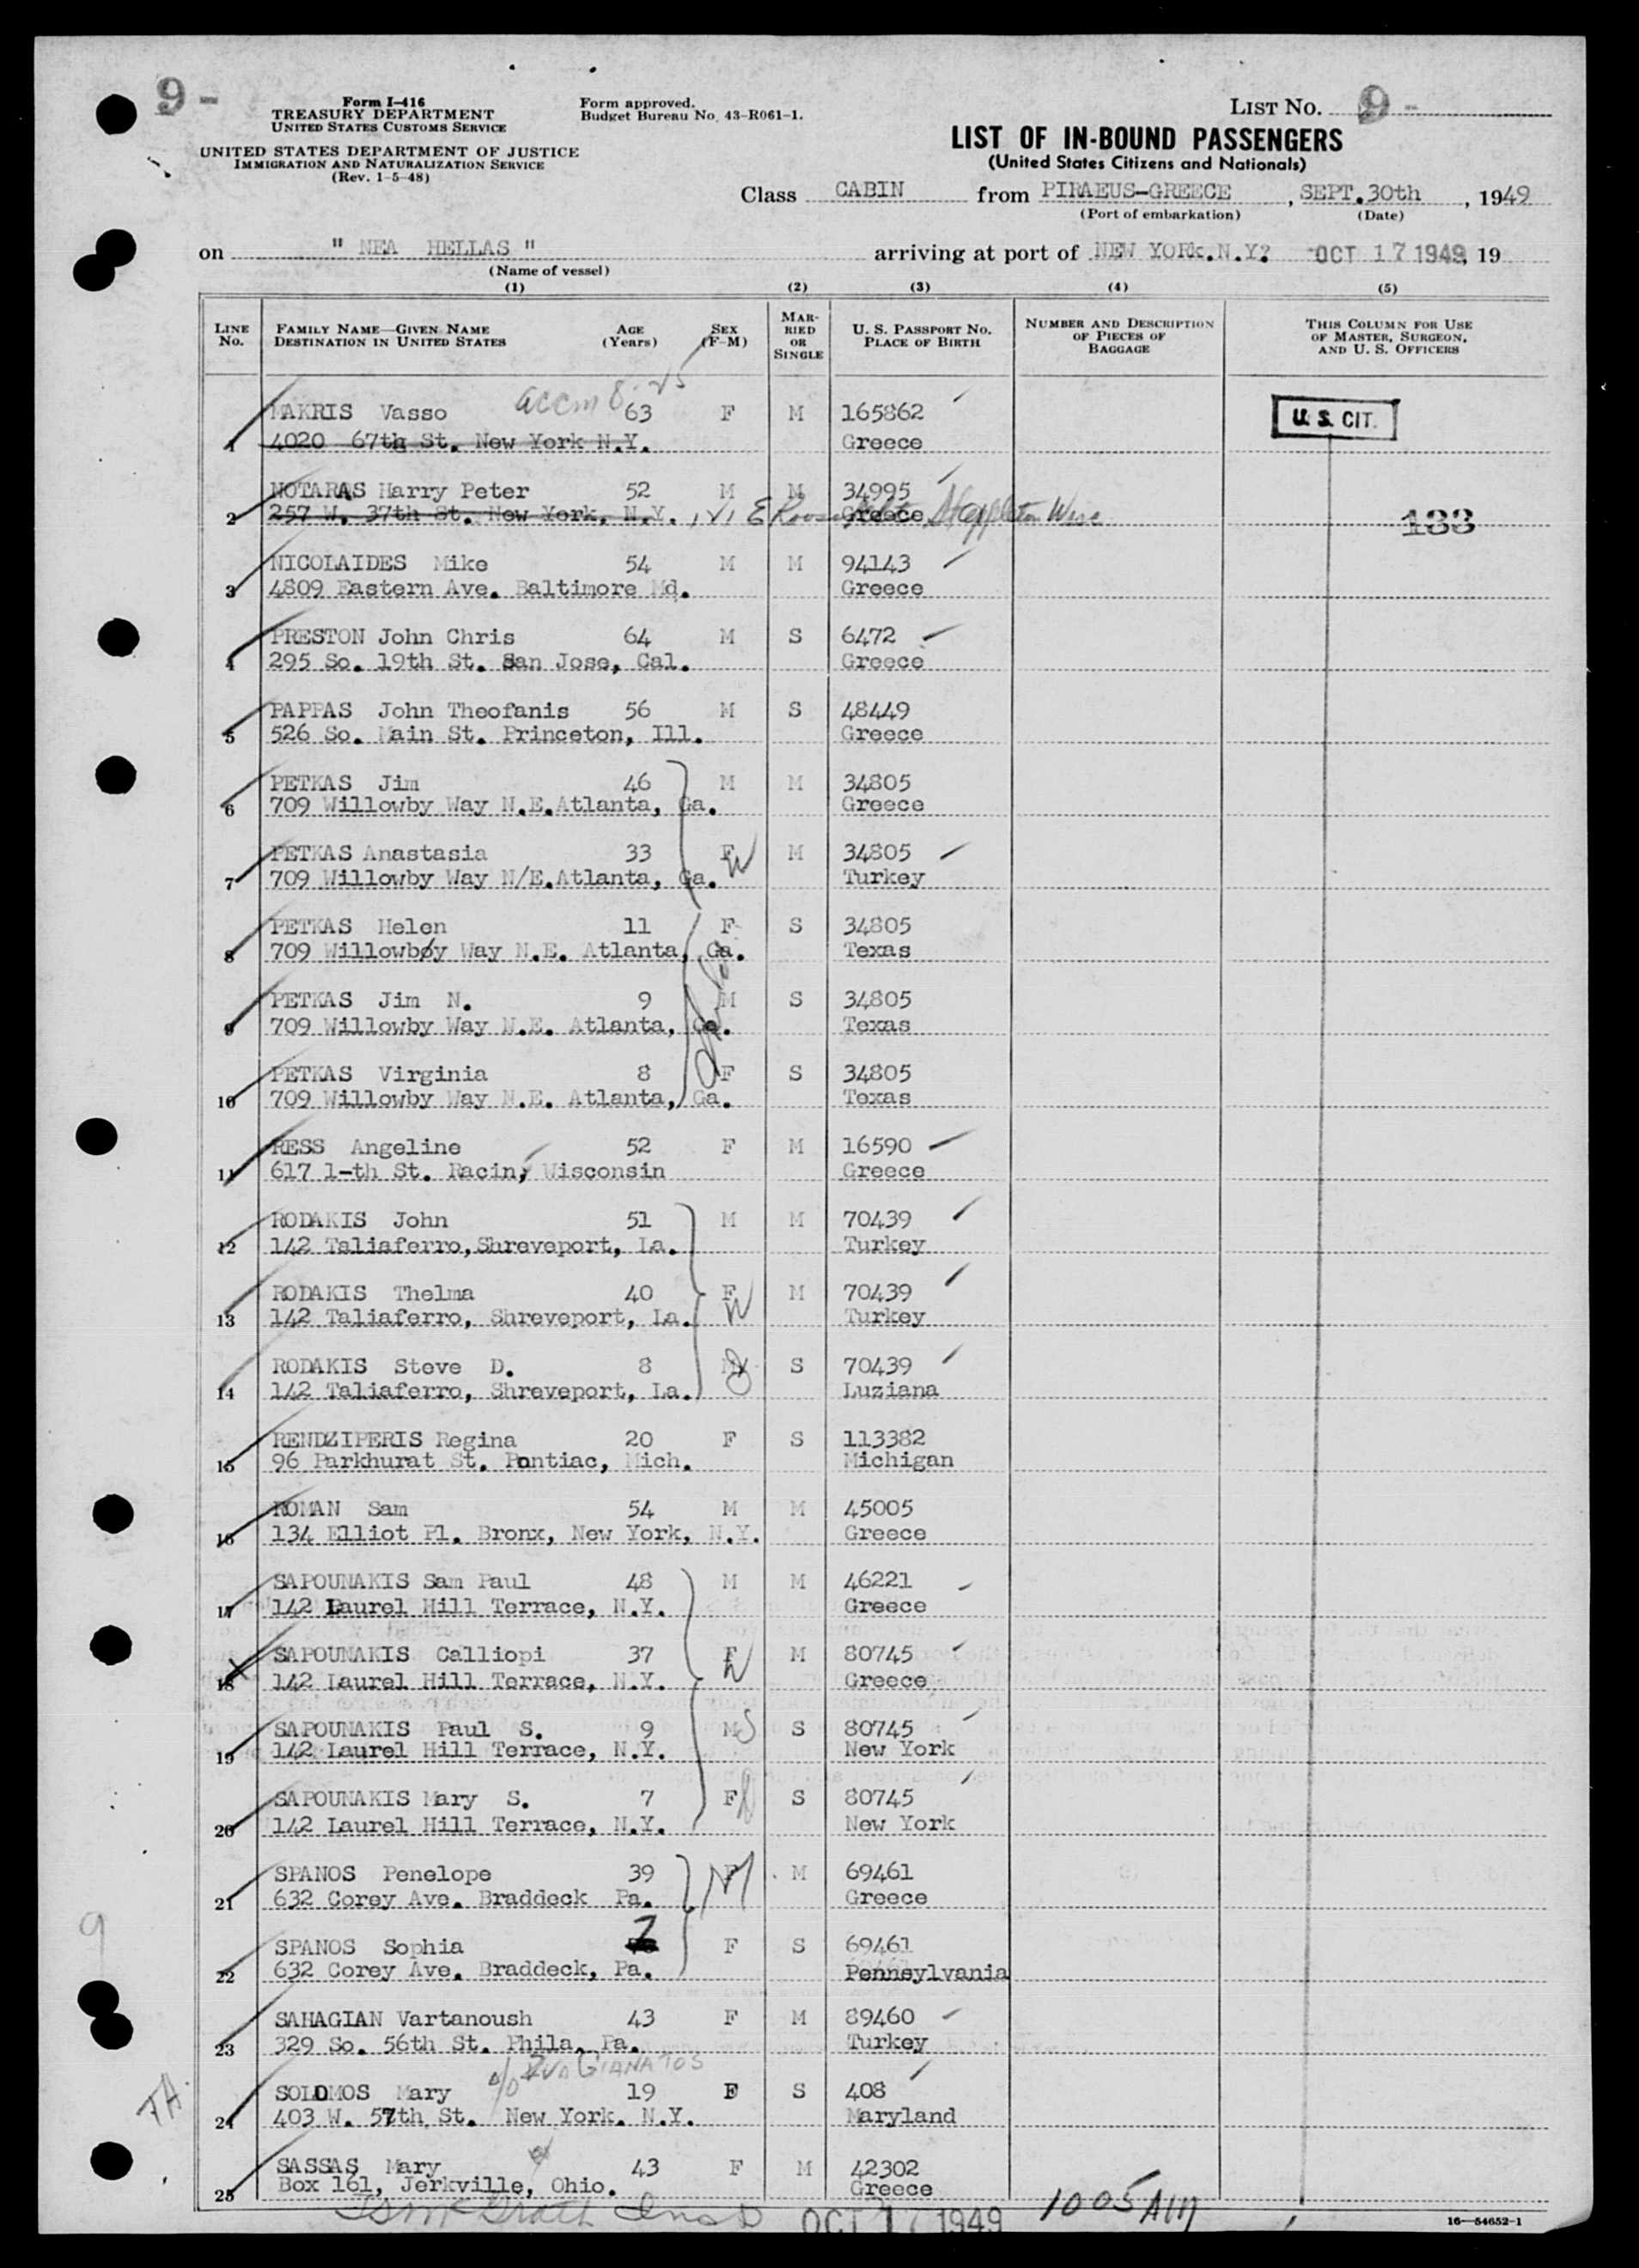 9 -
Form I-416
TREASURY DEPARTMENT
UNITED STATES CUSTOMS SERVICE
UNITED STATES DEPARTMENT OF JUSTICE
IMMIGRATION AND NATURALIZATION SERVICE
(Rev. 1-5-48)
Form approved.
Budget Bureau No. 43-R061-1.
LIST NO. 9 -
LIST OF IN-BOUND PASSENGERS
(United States Citizens and Nationals)
Class CABIN from PIRAEUS-GREECE, SEPT.30th, 1949
(Port of embarkation) (Date)
on " NEA HELLAS " arriving at port of NEW YORK.N.Y? OCT 17 1949, 19
(Name of vessel)
(1) (2) (3) (4) (5)
LINE No. FAMILY NAME—GIVEN NAME DESTINATION IN UNITED STATES AGE (Years) SEX (F-M) MARRIED OR SINGLE U. S. PASSPORT NO. PLACE OF BIRTH NUMBER AND DESCRIPTION OF PIECES OF BAGGAGE THIS COLUMN FOR USE OF MASTER, SURGEON, AND U. S. OFFICERS
MAKRIS Vasso 63 F M 165862 U. S. CIT.
1 4020 67th St. New York N.Y. Greece
NOTARAS Harry Peter 52 M M 34995
2 257 W. 37th St. New York, N.Y. Greece 133
NICOLAIDES Mike 54 M M 94143
3 4809 Eastern Ave. Baltimore Md. Greece
PRESTON John Chris 64 M S 6472
4 295 So. 19th St. San Jose, Cal. Greece
PAPPAS John Theofanis 56 M S 48449
5 526 So. Main St. Princeton, Ill. Greece
PETKAS Jim 46 M M 34805
6 709 Willowby Way N.E.Atlanta, Ga. Greece
PETKAS Anastasia 33 F W M 34805
7 709 Willowby Way N/E.Atlanta, Ga. Turkey
PETKAS Helen 11 F S 34805
8 709 Willowby Way N.E. Atlanta, Ga. Texas
PETKAS Jim N. 9 M S 34805
9 709 Willowby Way N.E. Atlanta, Ga. Texas
PETKAS Virginia 8 F S 34805
10 709 Willowby Way N.E. Atlanta, Ga. Texas
RESS Angeline 52 F M 16590
11 617 1-th St. Racin, Wisconsin Greece
RODAKIS John 51 M M 70439
12 142 Taliaferro,Shreveport, La. Turkey
RODAKIS Thelma 40 F W M 70439
13 142 Taliaferro, Shreveport, La. Turkey
RODAKIS Steve D. 8 S 70439
14 142 Taliaferro, Shreveport, La. Luziana
RENDZIPERIS Regina 20 F S 113382
15 96 Parkhurat St. Pontiac, Mich. Michigan
ROMAN Sam 54 M M 45005
16 134 Elliot Pl. Bronx, New York, N.Y. Greece
SAPOUNAKIS Sam Paul 48 M M 46221
17 142 Laurel Hill Terrace, N.Y. Greece
SAPOUNAKIS Calliopi 37 F W M 80745
18 142 Laurel Hill Terrace, N.Y. Greece
SAPOUNAKIS Paul S. 9 M S S 80745
19 142 Laurel Hill Terrace, N.Y. New York
SAPOUNAKIS Mary S. 7 F S 80745
20 142 Laurel Hill Terrace, N.Y. New York
SPANOS Penelope 39 F M 69461
21 632 Corey Ave. Braddeck Pa. Greece
9
SPANOS Sophia 7 F S 69461
22 632 Corey Ave. Braddeck, Pa. Pennsylvania
SAHAGIAN Vartanoush 43 F M 89460
23 329 So. 56th St. Phila, Pa. Turkey
SOLOMOS Mary 19 F S 408
24 403 W. 57th St. New York. N.Y. Maryland
SASSAS Mary 43 F M 42302
25 Box 161, Jerkville, Ohio. Greece
OCT 17 1949 1005 AM
16—54652-1